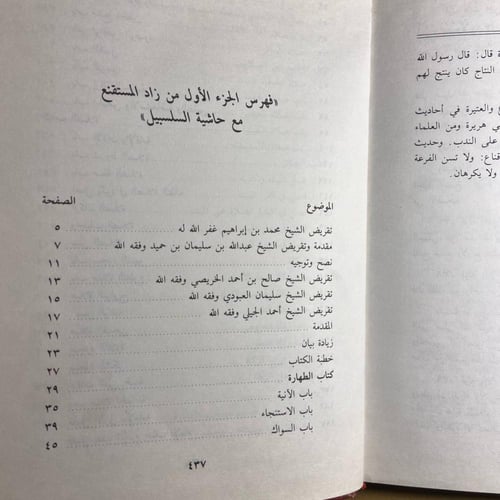 ة قال: قال رسول الله
النتاج كان ينتج لهم
ع والعتيرة في أحاديث
ي هريرة ومن العلماء
على الندب. وحديث
قناع: ولا تسن الفرعة
ولا يكرهان.
«فهرس الجزء الأول من زاد المستقنع
مع حاشية السلسبيل»
الموضوع الصفحة
تقريض الشيخ محمد بن إبراهيم غفر الله له ٥
مقدمة وتقريض الشيخ عبدالله بن سليمان بن حميد وفقه الله ٧
نصح وتوجيه ١١
تقريض الشيخ صالح بن أحمد الخريصي وفقه الله ١٣
تقريض الشيخ سليمان العبودي وفقه الله ١٥
تقريض الشيخ أحمد الجيلي وفقه الله ١٧
المقدمة ٢١
زيادة بيان ٢٣
خطبة الكتاب ٢٧
كتاب الطهارة ٢٩
باب الآنية ٣٥
باب الاستنجاء ٣٩
باب السواك ٤٥
٤٣٧